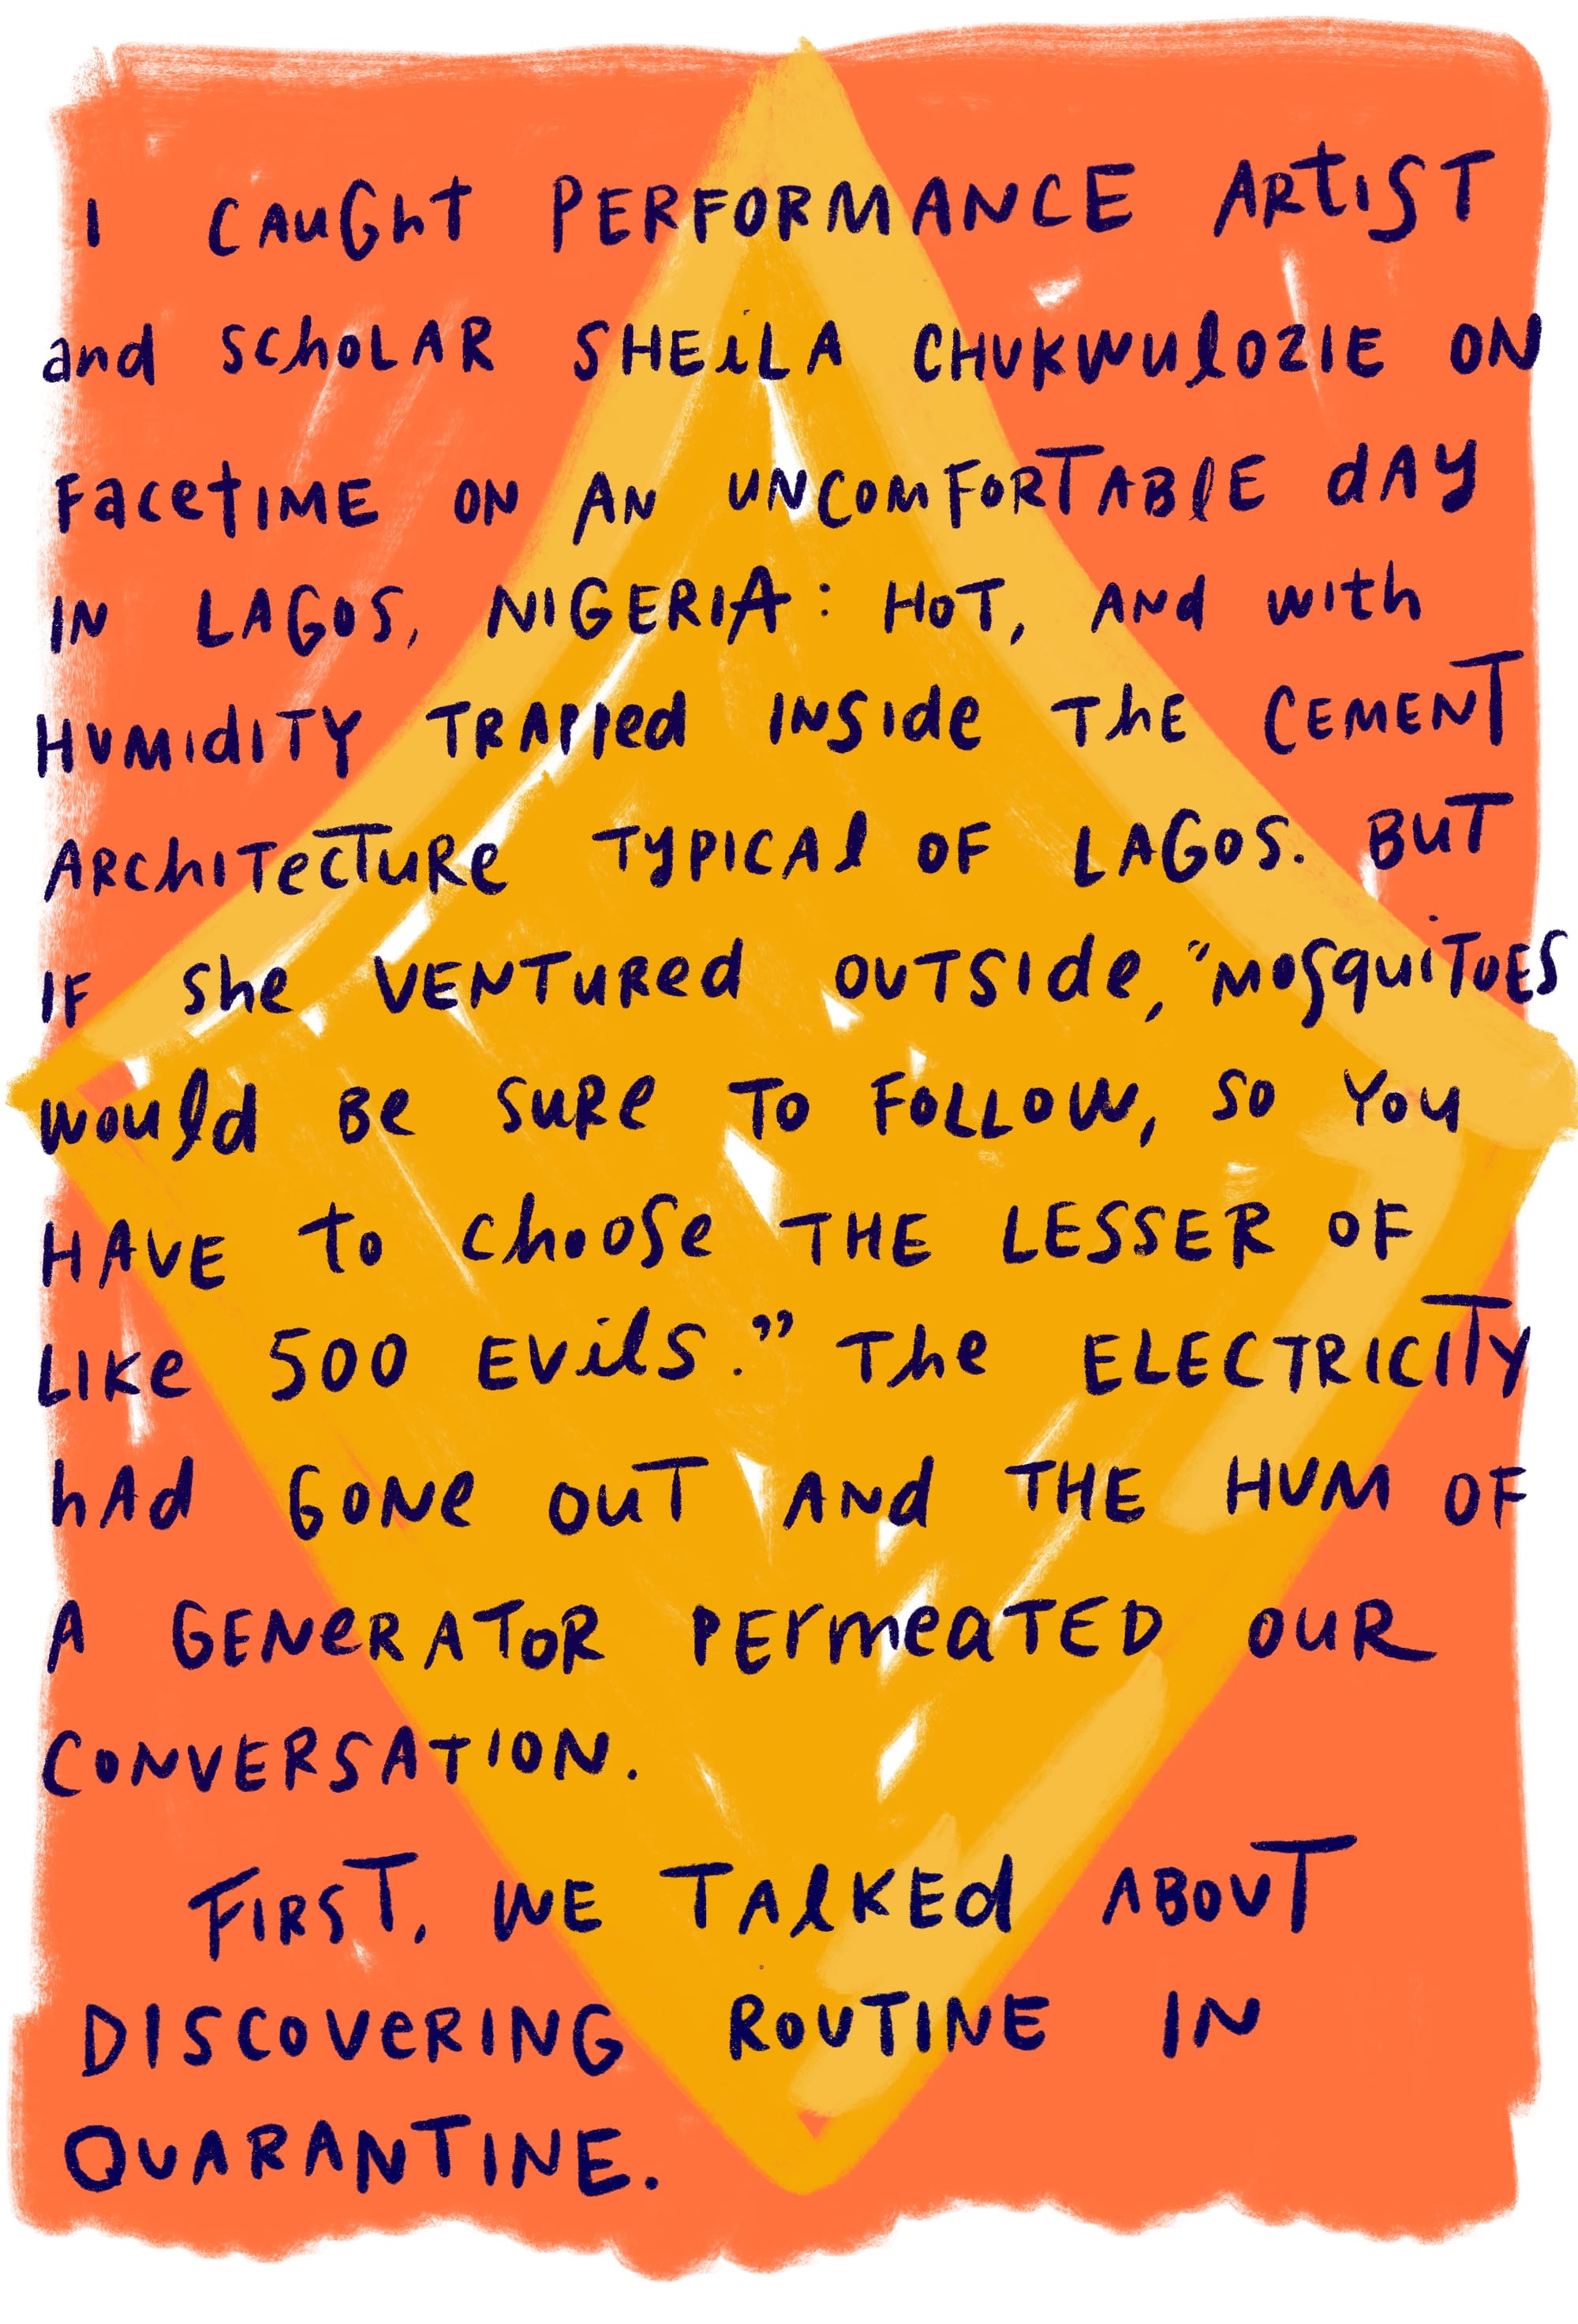 I CAUGhT PERFORMANCE ARtIST
and SChOLAR SHEiLA CHUKWUlOZIE ON
FacetIME ON AN UNCOMFORTABlE dAY
IN LAGOS, NIGERIA: HOT, ANd with
HUMIdITY TRAPPed INSIde ThE CEMENT
ARChITecTURe TYPICAl OF LAGOS. BUT
IF She VENTURed OUTSIde, "MOSquiTOES
would Be SURe TO FOLLOW, SO YOU
HAVE to choose THE LESSER OF
LIKe 500 EVilS." The ELECTRICITY
hAd GONe OUT ANd THE HUM OF
A GENeRATOR PERmeaTED OUR
CONVERSATION.
FIRST, WE TAlKEd ABOUT
DISCOVeRING ROUTINE IN
QUARANTINE.